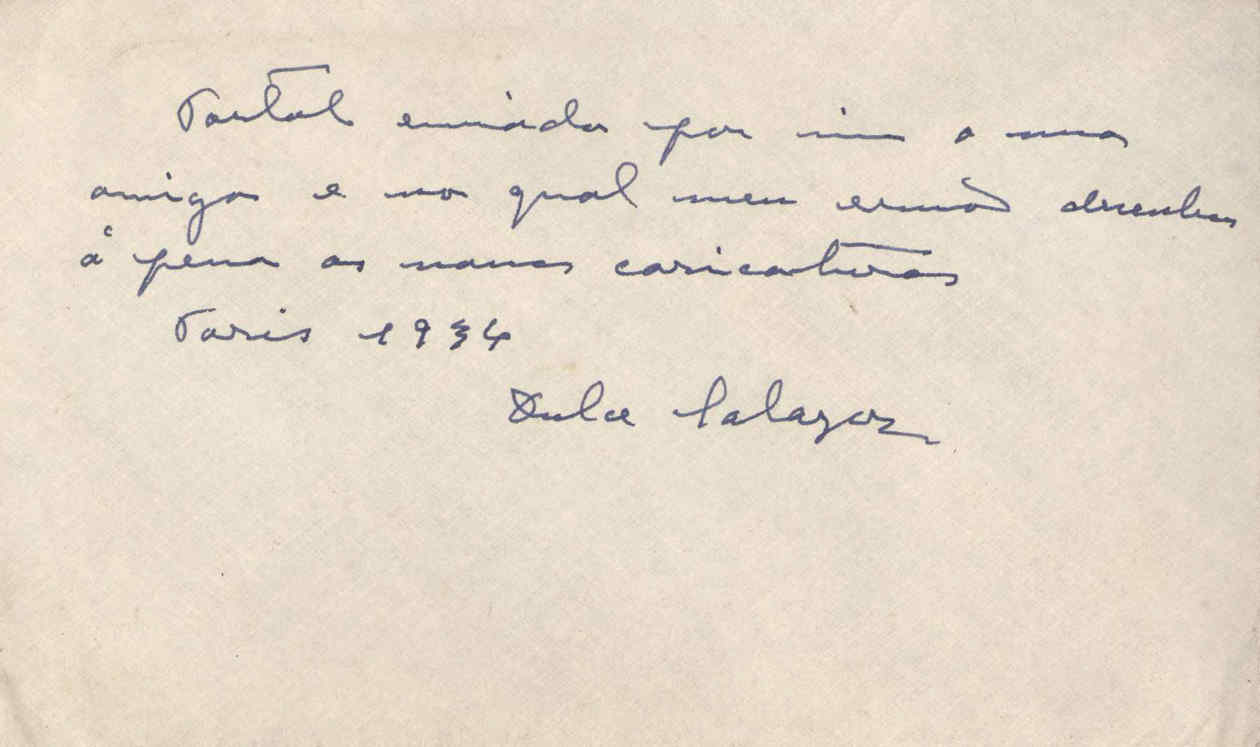 Postal enviado por mim a uma
amiga e no qual meu irmão desenhou
à pena as nossas caricaturas
Paris 1934
Dulce Salazar